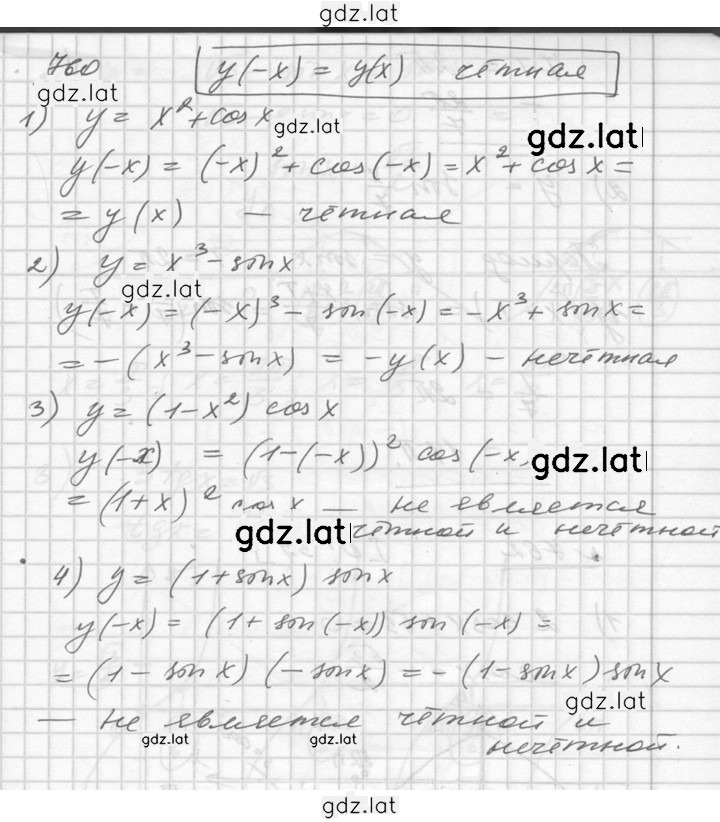 gdz.lat
760 y(-x) = y(x) чётная
gdz.lat
1) y = x² + cos x
gdz.lat
gdz.lat
y(-x) = (-x)² + cos(-x) = x² + cos x =
= y(x) — чётная
2) y = x³ - sin x
gdz.lat
y(-x) = (-x)³ - sin(-x) = -x³ + sin x =
= -(x³ - sin x) = -y(x) - нечётная
3) y = (1-x²) cos x
y(-x) = (1-(-x))² cos(-x
gdz.lat
= (1+x)² cos x — не является
gdz.lat чётной и нечётной
4) y = (1+sin x) sin x
y(-x) = (1+ sin(-x)) sin(-x) =
= (1- sin x) (- sin x) = - (1-sin x) sin x
gdz.lat
— не является чётной и
gdz.lat gdz.lat нечётной.
gdz.lat